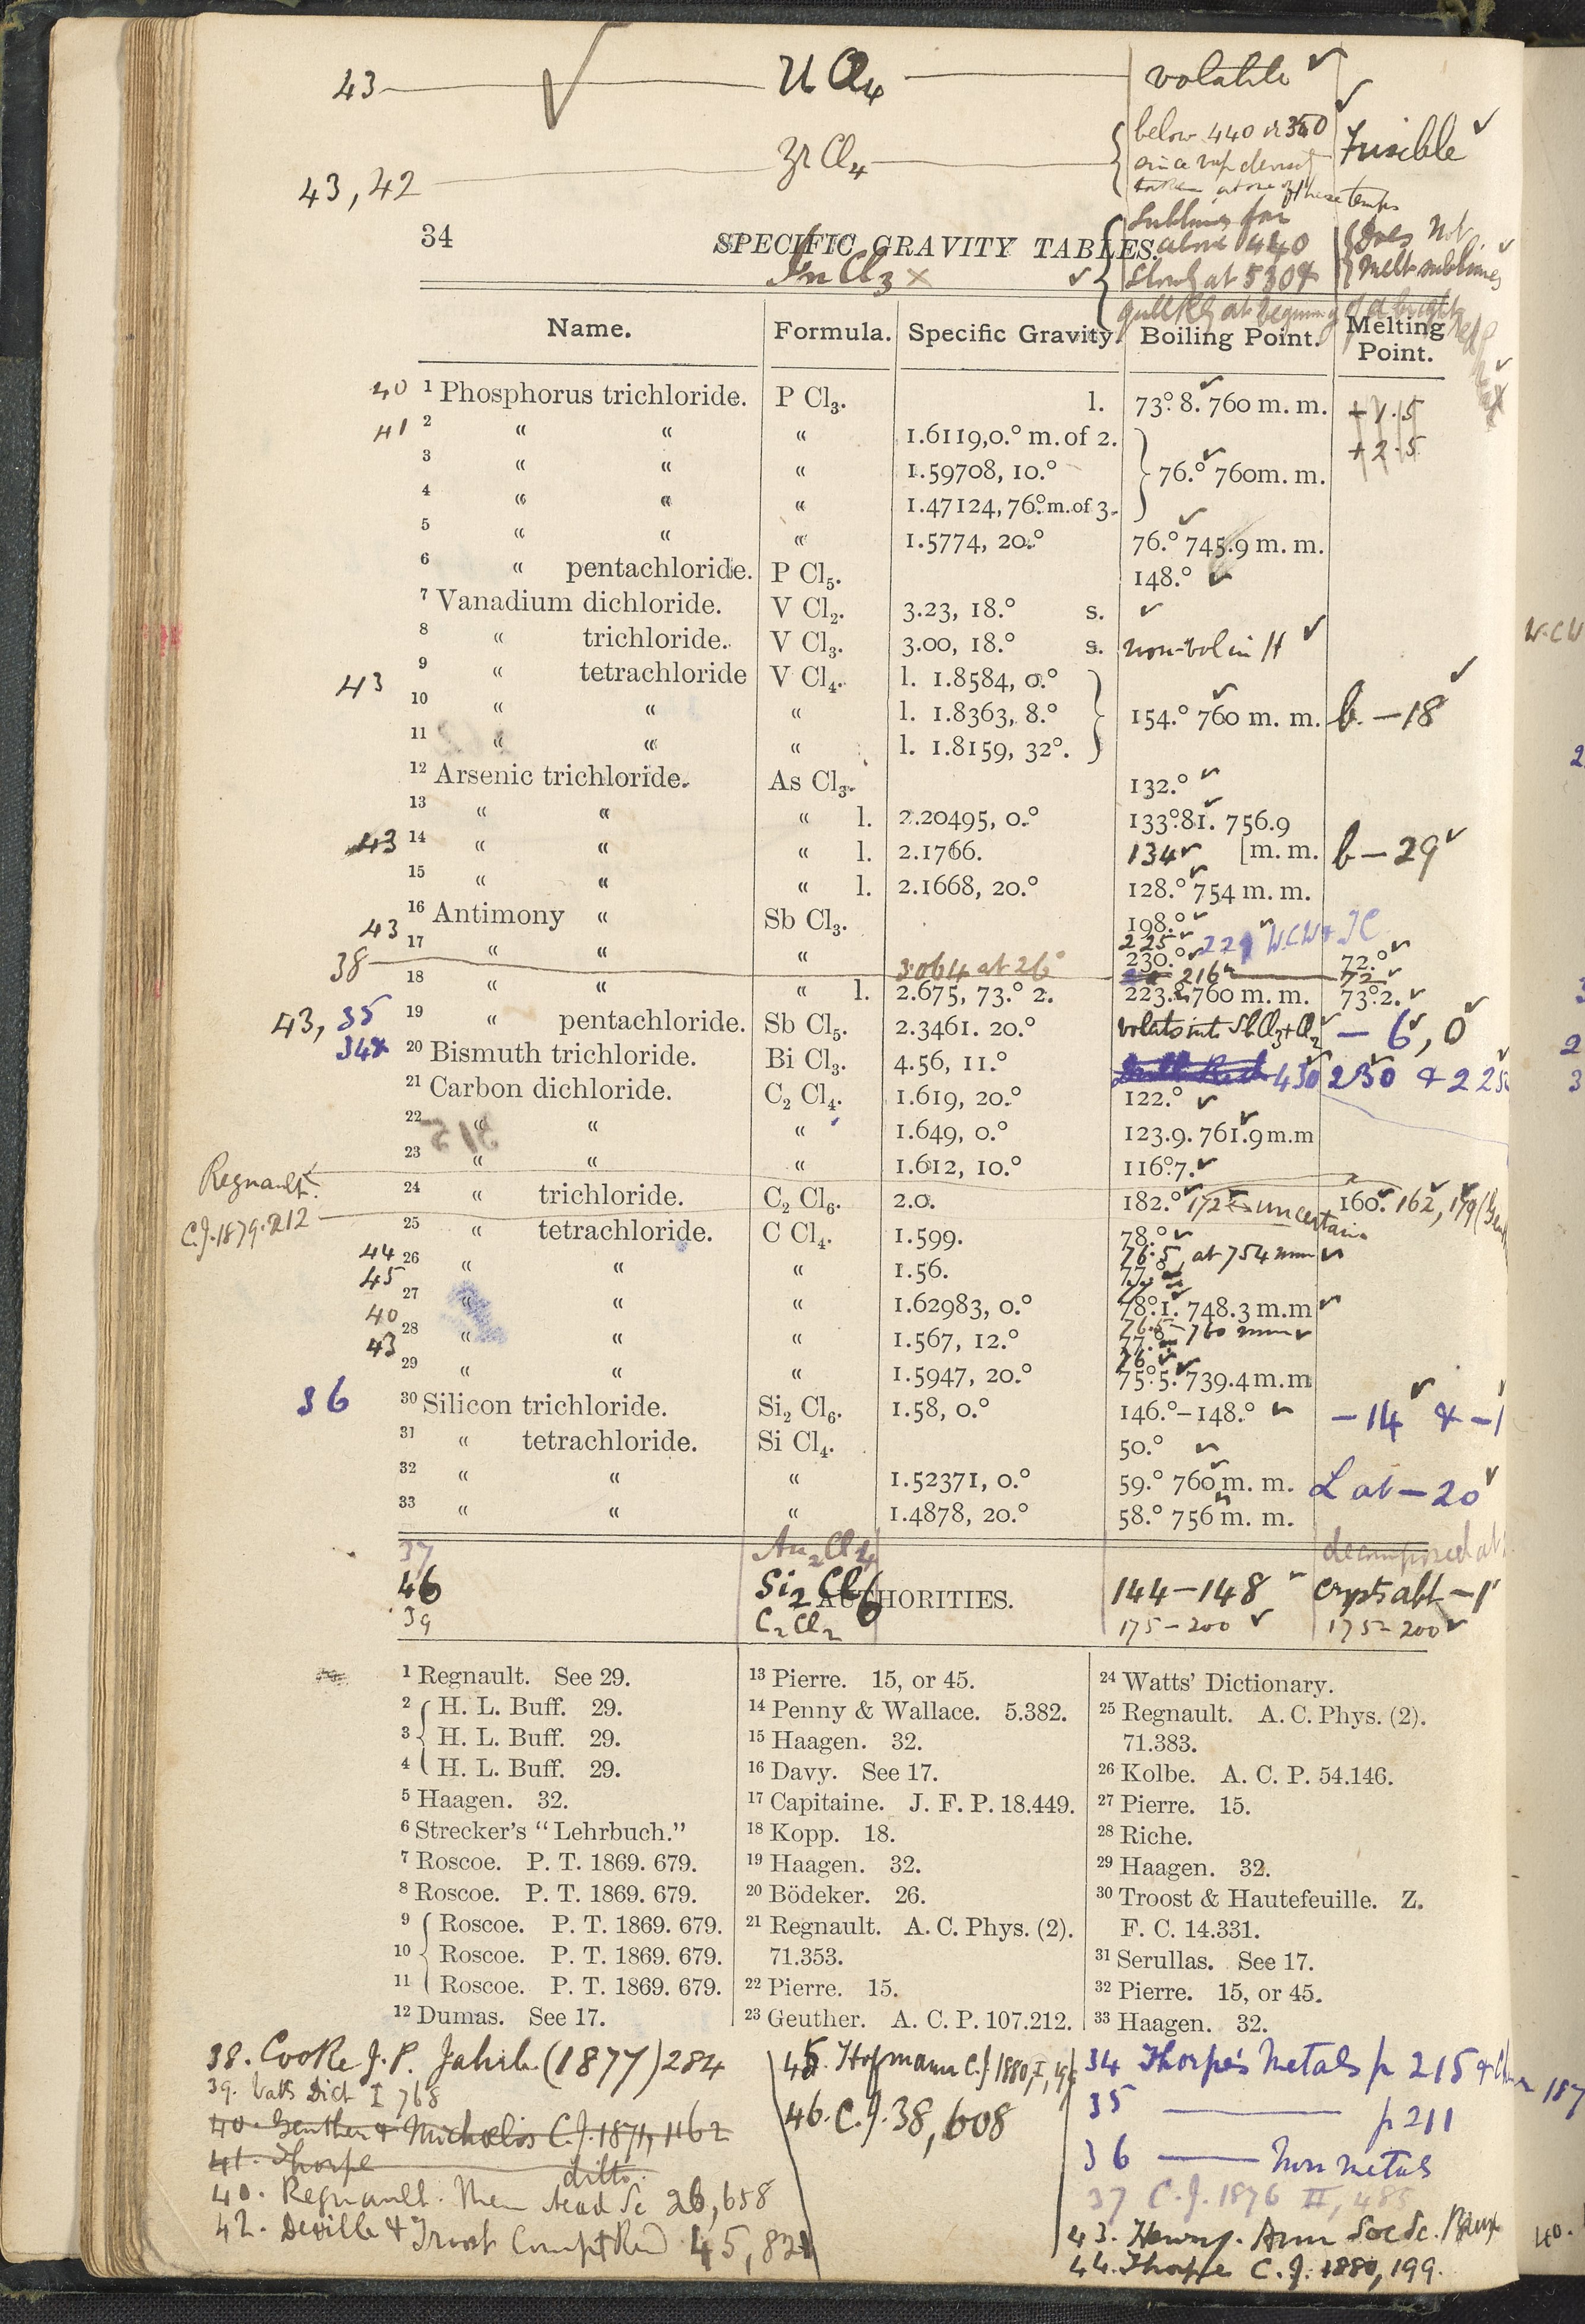 43 ✓ UCl4 volatile ✓
43, 42 ZrCl4 below 440 or 350 Fusible ✓
since vap density
taken at one of these temps
34 SPECIFIC GRAVITY TABLES.
InCl3 × ✓ Sublimes far above 440 Slowly at 530 Does not melt sublimes ✓
Name. Formula. Specific Gravity. Boiling Point. Melting Point.
40 1 Phosphorus trichloride. P Cl3. l. 73°.8. 760 m. m. ✓
41 2 “ “ “ 1.6119,0.° m. of 2.
3 “ “ “ 1.59708, 10.° 76.° 760m. m. ✓ + 2.5
4 “ “ “ 1.47124, 76°.m.of 3.
5 “ “ “ 1.5774, 20.° 76.° 745.9 m. m. ✓
6 “ pentachloride. P Cl5. 148.° ✓
7 Vanadium dichloride. V Cl2. 3.23, 18.° s. ✓
8 “ trichloride. V Cl3. 3.00, 18.° s. non-vol in H ✓
43 9 “ tetrachloride V Cl4. l. 1.8584, 0.°
10 “ “ “ l. 1.8363, 8.° 154.° 760 m. m. ✓ b. –18 ✓
11 “ “ “ l. 1.8159, 32°.
12 Arsenic trichloride. As Cl3. 132.° ✓
13 “ “ “ l. 2.20495, 0.° 133°.81. 756.9 ✓
43 14 “ “ “ l. 2.1766. 134 ✓ [m. m. b – 29 ✓
15 “ “ “ l. 2.1668, 20.° 128.° 754 m. m. ✓
16 Antimony “ Sb Cl3. 198.° ✓
43 17 “ “ “ 225 ✓ 230.° ✓ 72.° ✓
38 3.064 at 26° 216 72 ✓
18 “ “ “ l. 2.675, 73.° 2. 223. 760 m. m. 73°.2. ✓
43, 35 19 “ pentachloride. Sb Cl5. 2.3461. 20.° volats into SbCl3+Cl2 ✓ – 6 ✓, 0 ✓
34 20 Bismuth trichloride. Bi Cl3. 4.56, 11.° 430 ✓ 230 ✓ & 225
21 Carbon dichloride. C2 Cl4. 1.619, 20.° 122.° ✓
22 “ “ “ 1.649, 0.° 123.9. 761.9 m.m ✓
23 “ “ “ 1.612, 10.° 116°.7. ✓
Regnault.
24 “ trichloride. C2 Cl6. 2.0. 182.° ✓ 172 uncertain 160. ✓ 162 ✓,
C.J. 1879. 212
25 “ tetrachloride. C Cl4. 1.599. 78.° ✓
44 76.5, at 754 mm ✓
26 “ “ “ 1.56. 77.°
45 27 “ “ “ 1.62983, 0.° 78°.1. 748.3 m.m ✓
40 76.5 – 760 mm ✓
28 “ “ “ 1.567, 12.° 77.°
43 76 ✓
29 “ “ “ 1.5947, 20.° 75°.5. 739.4 m.m ✓
36 30 Silicon trichloride. Si2 Cl6. 1.58, 0.° 146.°–148.° ✓ – 14 ✓ & –1
31 “ tetrachloride. Si Cl4. 50.° ✓
32 “ “ “ 1.52371, 0.° 59.° 760 m. m. ✓ L at – 20 ✓
33 “ “ “ 1.4878, 20.° 58.° 756 m. m.
37 Au2Cl4 decomposed at
46 Si2Cl6 144–148 crysts abt –1
AUTHORITIES.
39 C2Cl2 175–200 ✓ 175–200 ✓
1 Regnault. See 29.
2 H. L. Buff. 29.
3 H. L. Buff. 29.
4 H. L. Buff. 29.
5 Haagen. 32.
6 Strecker's “Lehrbuch.”
7 Roscoe. P. T. 1869. 679.
8 Roscoe. P. T. 1869. 679.
9 Roscoe. P. T. 1869. 679.
10 Roscoe. P. T. 1869. 679.
11 Roscoe. P. T. 1869. 679.
12 Dumas. See 17.
13 Pierre. 15, or 45.
14 Penny & Wallace. 5.382.
15 Haagen. 32.
16 Davy. See 17.
17 Capitaine. J. F. P. 18.449.
18 Kopp. 18.
19 Haagen. 32.
20 Bödeker. 26.
21 Regnault. A. C. Phys. (2).
71.353.
22 Pierre. 15.
23 Geuther. A. C. P. 107.212.
24 Watts' Dictionary.
25 Regnault. A. C. Phys. (2).
71.383.
26 Kolbe. A. C. P. 54.146.
27 Pierre. 15.
28 Riche.
29 Haagen. 32.
30 Troost & Hautefeuille. Z.
F. C. 14.331.
31 Serullas. See 17.
32 Pierre. 15, or 45.
33 Haagen. 32.
38. Cooke J. P. Jahrb. (1877) 284
39. Watts Dict I 768
40. Geuther & Michaelis C.J. 1871, 1162
41. Thorpe ditto
40. Regnault. Mem Acad Sc 26, 658
42. Deville & Troost Compt Rend 45, 821
45. Hofmann C.J. 1880, I,
46. C.J. 38, 608
34 Thorpe's Metals p 215
35 ——— p 211
36 ——— Non metals
37 C.J. 1876 II, 485
43. Henry. Ann Soc Sc. Brux
44. Thorpe C.J. 1880, 199.